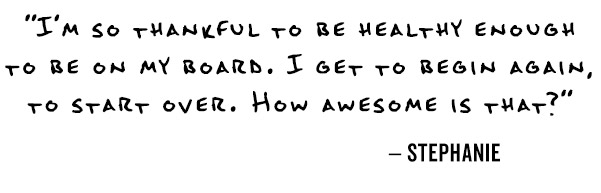 "I'm so thankful to be healthy enough
to be on my board. I get to begin again,
to start over. How awesome is that?"
– STEPHANIE